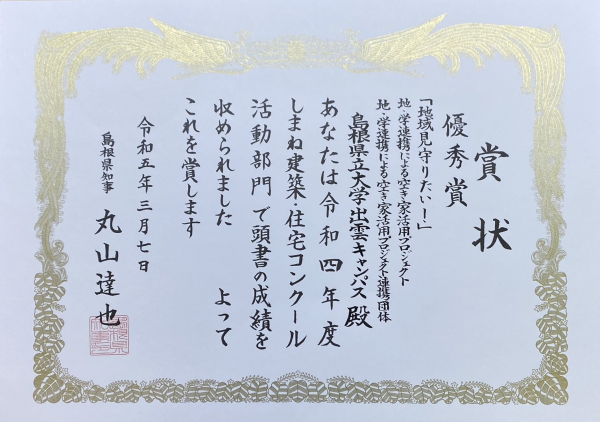 賞状
優秀賞
「地域見守りたい！」
地・学連携による空き家活用プロジェクト
地・学連携による空き家活用プロジェクト連携団体
島根県立大学出雲キャンパス 殿
あなたは令和四年度
しまね建築・住宅コンクール
活動部門で頭書の成績を
収められました よって
これを賞します
令和五年三月七日
島根県知事 丸山達也